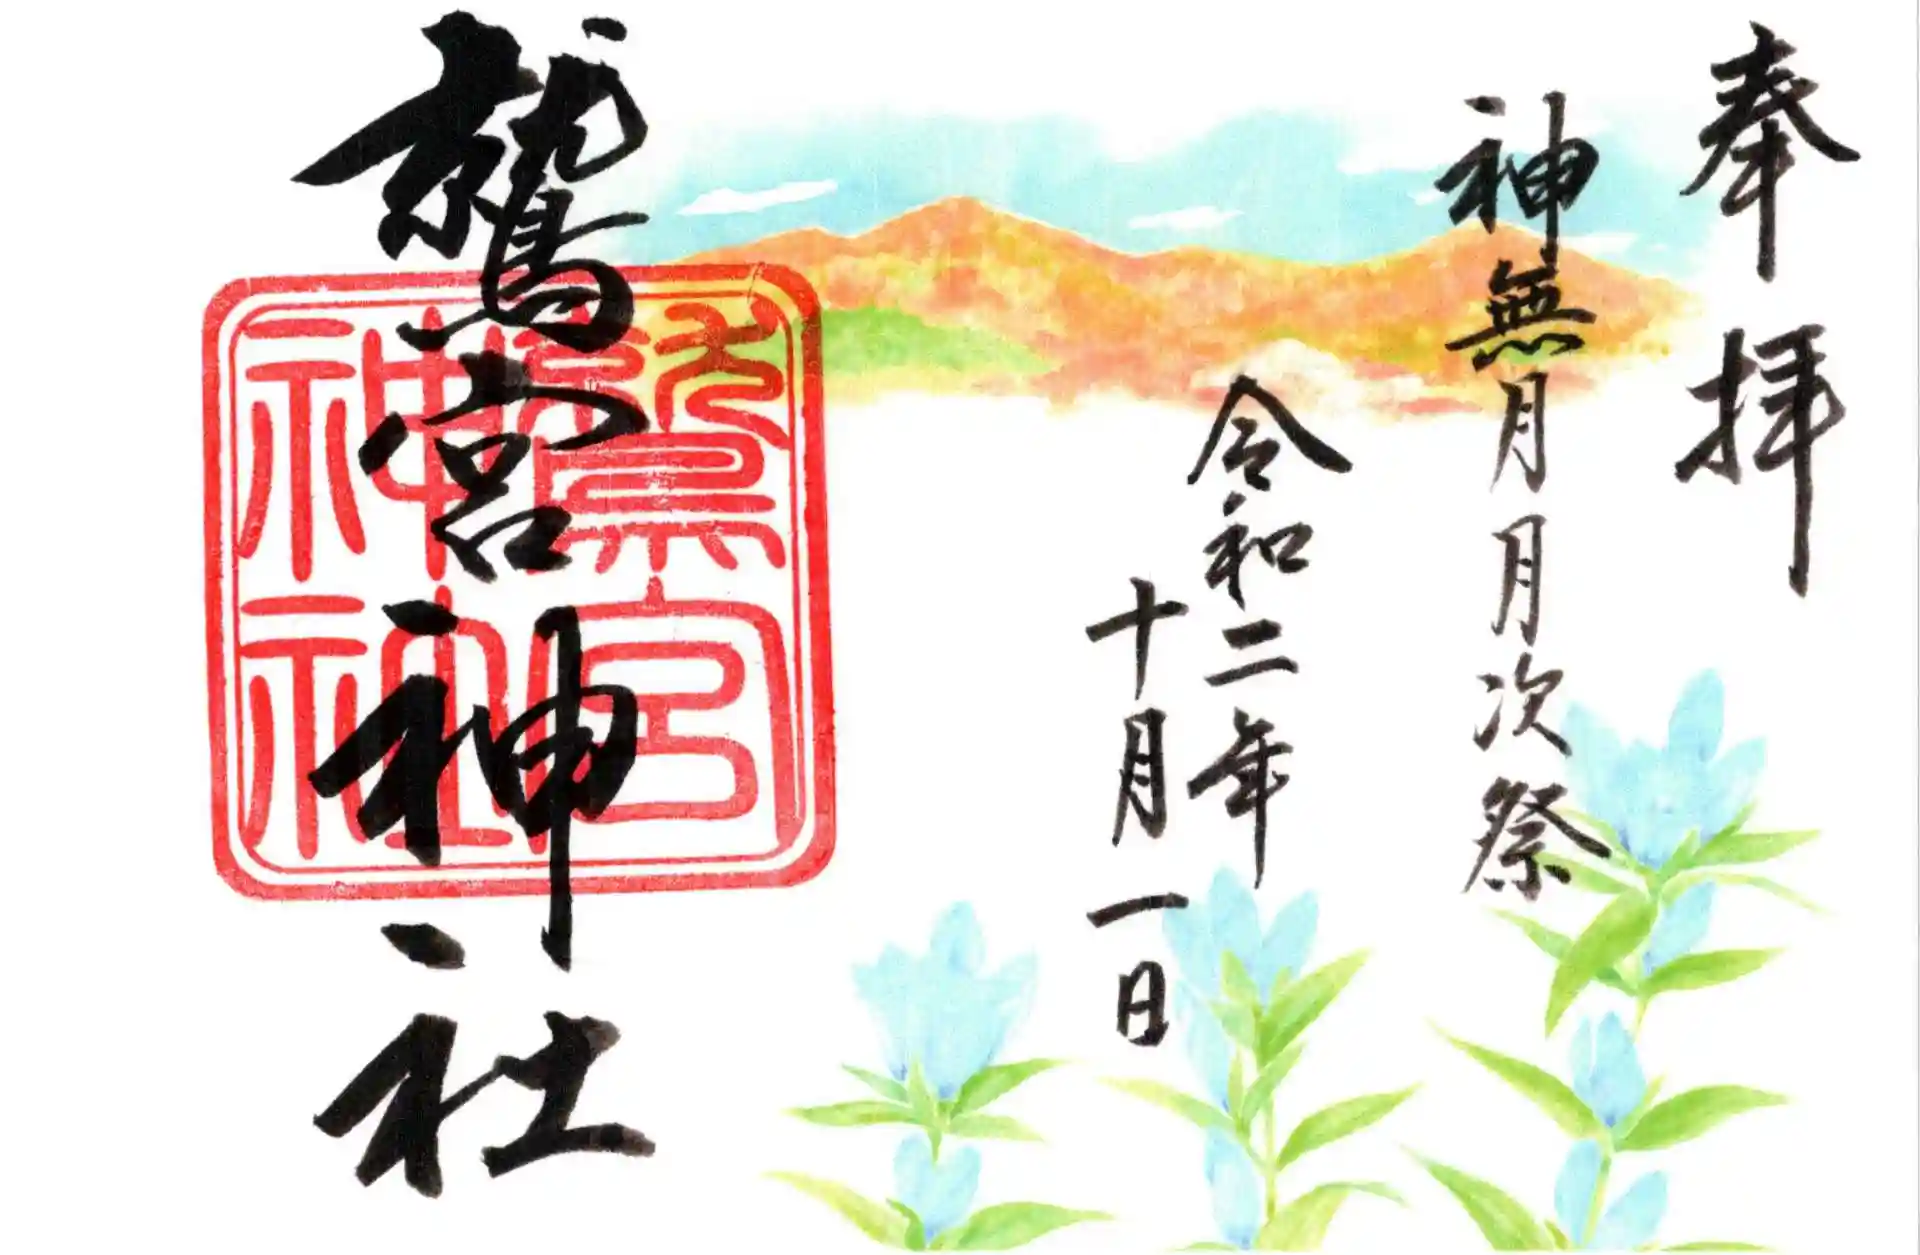 奉拝
神無月月次祭
令和二年
十月一日
鷲宮神社
鷲宮
神社